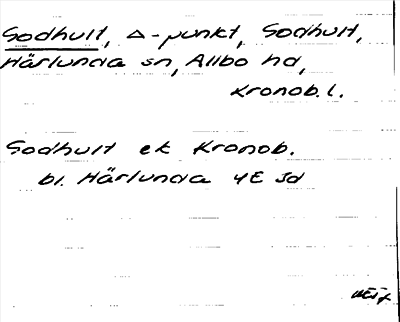 Sodhult, Δ-punkt, Sodhult,
Härlunda sn, Allbo hd,
Kronob. l.
Sodhult ek Kronob.
bl. Härlunda 4E 3d